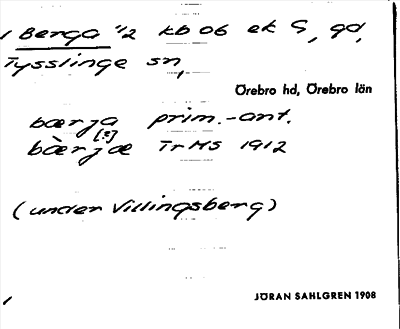 1 Berga 1/2 kb 06 ek G, gd,
Tysslinge sn,
Örebro hd, Örebro län
bærja prim.-ant.
[?]
bæ̀rjæ TrMS 1912
(under Villingsberg)
JÖRAN SAHLGREN 1908